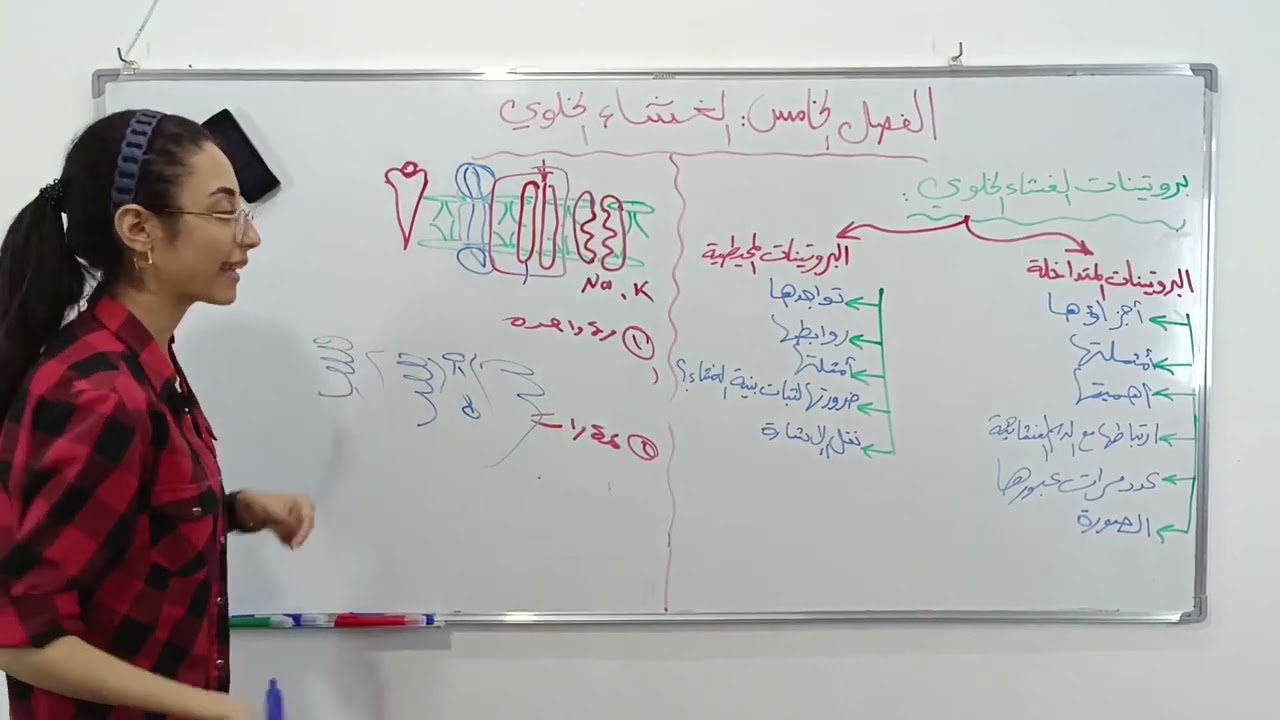 الفصل الخامس: الغشاء الخلوي
بروتينات الغشاء الخلوي:
البروتينات المتداخلة
أجزاؤها
أمثلتها
أهميتها
ارتباطها مع
عدد مرات عبورها
الصورة
البروتينات المحيطية
تواجدها
روابطها
أمثلتها
ضرورتها لثبات بنية الغشاء؟
نقل الإشارة
Na, K
① مرة واحدة
② مرات